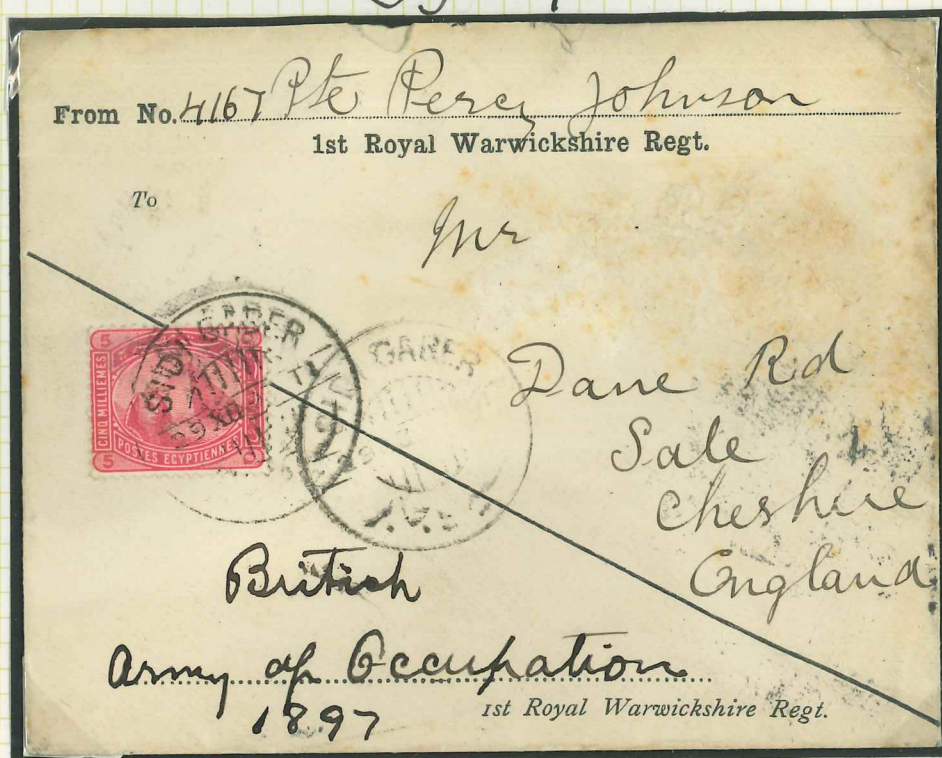 From No. 4167 Pte Percy Johnson
1st Royal Warwickshire Regt.
To
Mr
Dane Rd
Sale
Cheshire
England
SIDI GABER
GABER
5 5
CINQ MILLIEMES
POSTES EGYPTIENNES
5 5
British
Army of Occupation
1897
1st Royal Warwickshire Regt.